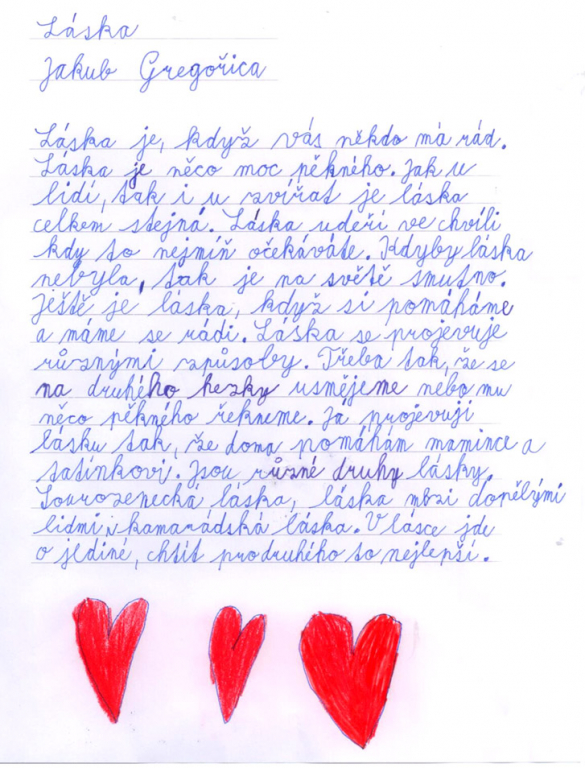 Láska
Jakub Gregořica
Láska je, když vás někdo má rád.
Láska je něco moc pěkného. Jak u
lidí, tak i u zvířat je láska
celkem stejná. Láska udeří ve chvíli
kdy to nejmíň očekáváte. Kdyby láska
nebyla, tak je na světě smutno.
Ještě je láska, když si pomáháme
a máme se rádi. Láska se projevuje
různými způsoby. Třeba tak, že se
na druhého hezky usmějeme nebo mu
něco pěkného řekneme. Já projevuji
lásku tak, že doma pomáhám mamince a
tatínkovi. Jsou různé druhy lásky.
Sourozenecká láska, láska mezi dospělými
lidmi i kamarádská láska. V lásce jde
o jediné, chtít pro druhého to nejlepší.